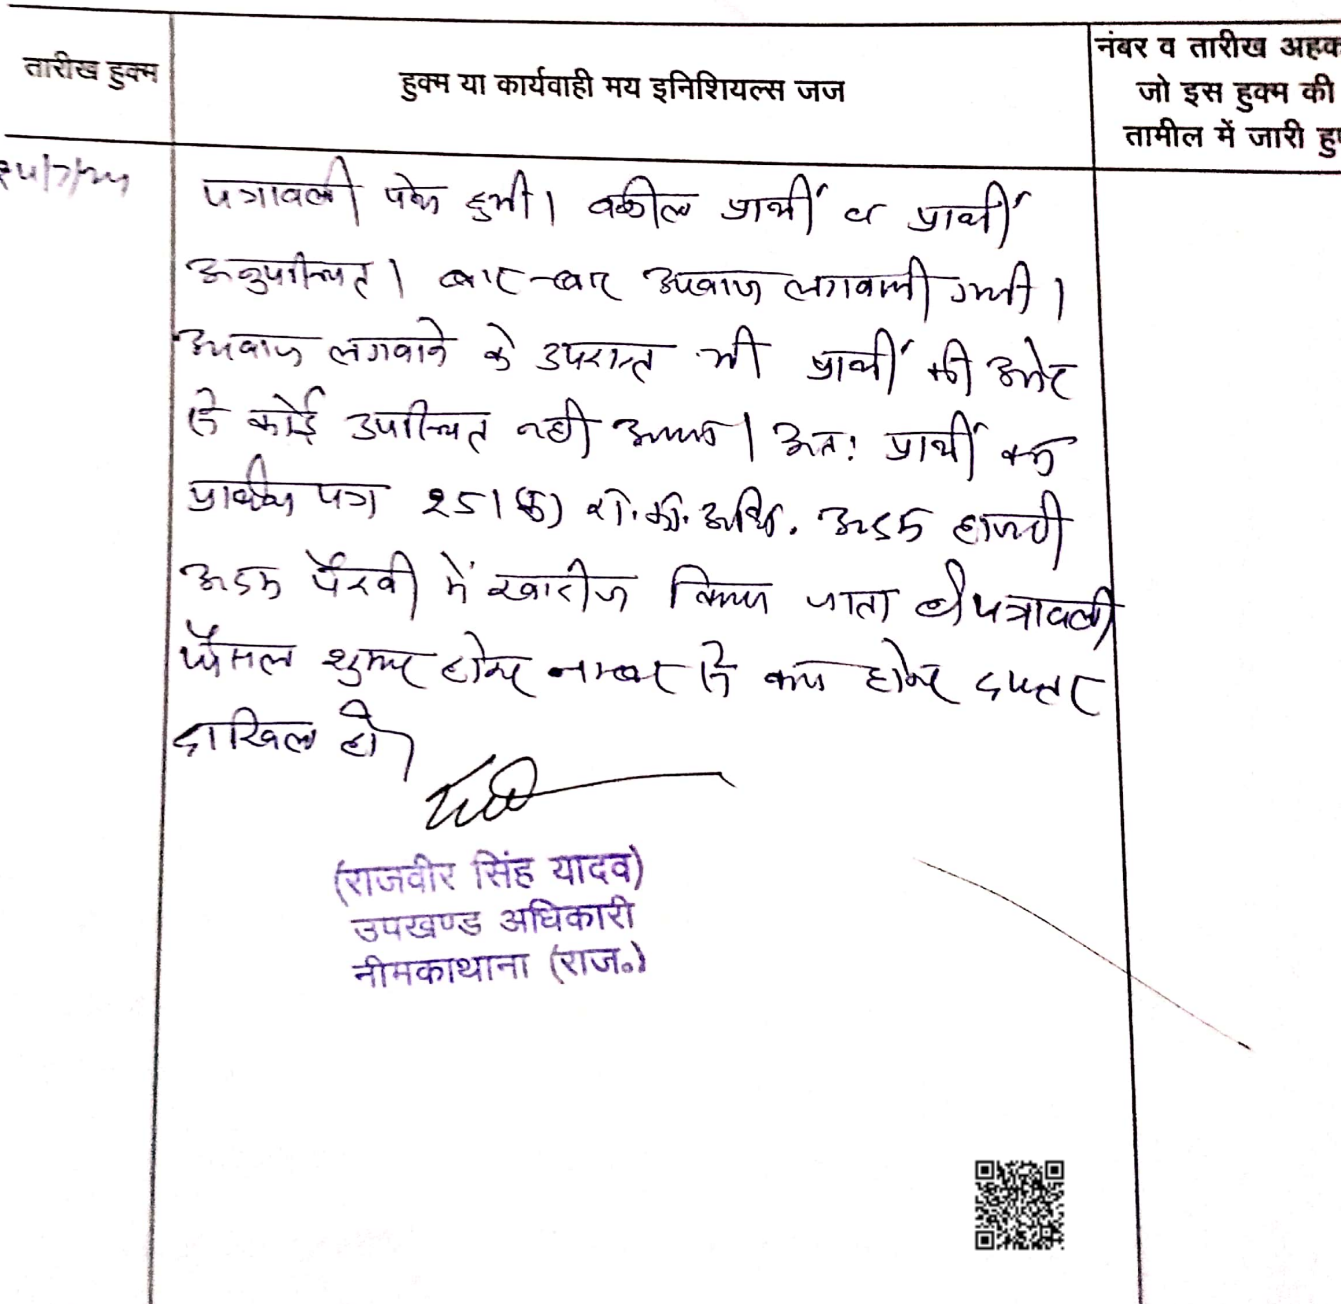 तारीख हुक्म
हुक्म या कार्यवाही मय इनिशियल्स जज
नंबर व तारीख अहक
जो इस हुक्म की
तामील में जारी हु
पत्रावली पेश हुयी। वकील प्रार्थी व प्रार्थी
अनुपस्थित। बार-बार आवाज लगवायी गयी।
आवाज लगवाने के उपरान्त भी प्रार्थी की ओर
से कोई उपस्थित नही आया। अतः प्रार्थी का
प्रार्थना पत्र 251(क) रा.का.अधि. अदम हाजरी
अदम पैरवी में खारीज किया जाता है। पत्रावली
फैसल शुमार होकर नम्बर से कम होकर दफ्तर
दाखिल हो।
(राजवीर सिंह यादव)
उपखण्ड अधिकारी
नीमकाथाना (राज०)